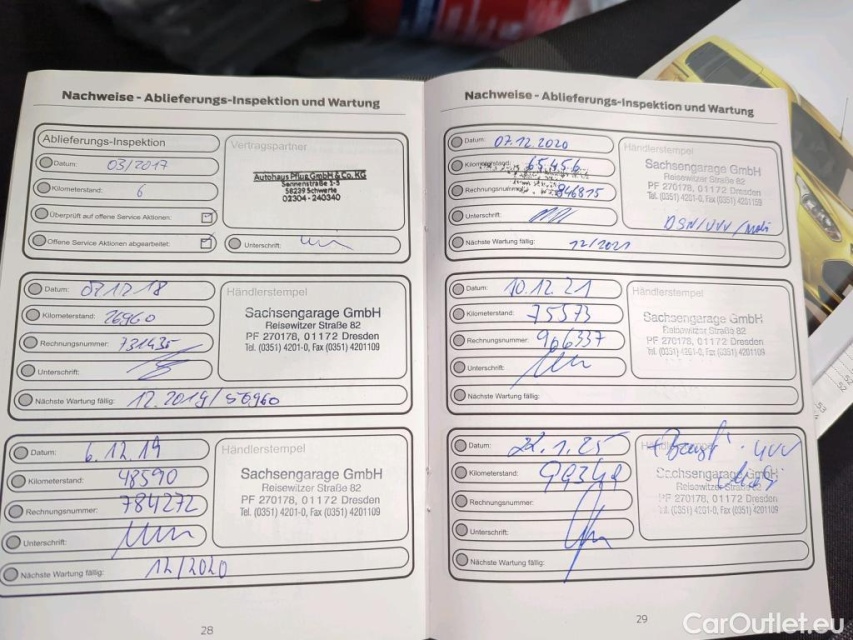 Nachweise - Ablieferungs-Inspektion und Wartung
Ablieferungs-Inspektion
Datum: 03/2017
Kilometerstand: 6
Überprüft auf offene Service Aktionen:
Offene Service Aktionen abgearbeitet:
Vertragspartner
Autohaus Pflug GmbH & Co. KG
Sonnenstraße 1-3
58239 Schwerte
02304 - 240340
Unterschrift:
Datum: 07.12.18
Kilometerstand: 26960
Rechnungsnummer: 731435
Unterschrift:
Nächste Wartung fällig: 12.2019/56960
Händlerstempel
Sachsengarage GmbH
Reisewitzer Straße 82
PF 270178, 01172 Dresden
Tel. (0351) 4201-0, Fax (0351) 4201109
Datum: 6.12.19
Kilometerstand: 48590
Rechnungsnummer: 784272
Unterschrift:
Nächste Wartung fällig: 12/2020
Händlerstempel
Sachsengarage GmbH
Reisewitzer Straße 82
PF 270178, 01172 Dresden
Tel. (0351) 4201-0, Fax (0351) 4201109
28
Nachweise - Ablieferungs-Inspektion und Wartung
Datum: 07.12.2020
Kilometerstand: 65456
Rechnungsnummer: 846815
Unterschrift:
Nächste Wartung fällig: 12/2021
Händlerstempel
Sachsengarage GmbH
Reisewitzer Straße 82
PF 270178, 01172 Dresden
Tel. (0351) 4201-0, Fax (0351) 4201109
Datum: 10.12.21
Kilometerstand: 75573
Rechnungsnummer: 966337
Unterschrift:
Nächste Wartung fällig:
Händlerstempel
Sachsengarage GmbH
Reisewitzer Straße 82
PF 270178, 01172 Dresden
Tel. (0351) 4201-0, Fax (0351) 4201109
Datum: 22.1.25
Kilometerstand:
Rechnungsnummer:
Unterschrift:
Nächste Wartung fällig:
Sachsengarage GmbH
Reisewitzer Straße 82
PF 270178, 01172 Dresden
Tel. (0351) 4201-0, Fax (0351) 4201109
29
CarOutlet.eu